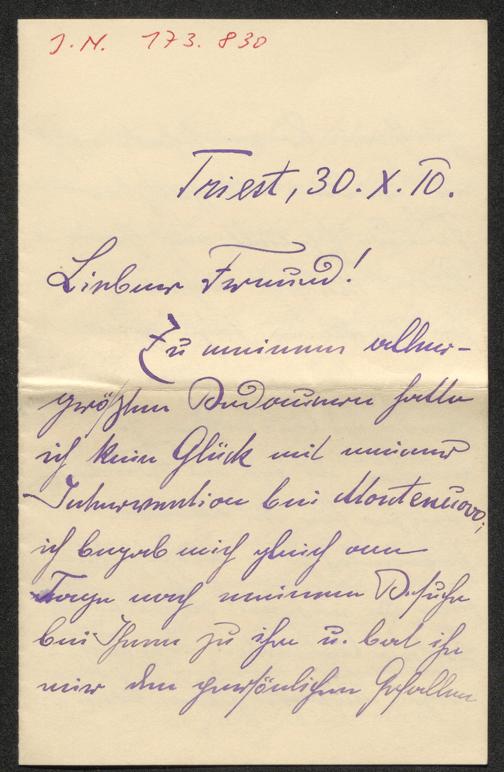 J.N. 173.830
Triest, 30. X. 10.
Lieber Freund!
Zu meinem aller-
größten Bedauern hatte
ich kein Glück mit meiner
Intervention bei Montenuovo;
ich begab mich gleich am
Tage nach meinem Besuche
bei Ihnen zu ihm u. bat ihn
mir den persönlichen Gefallen